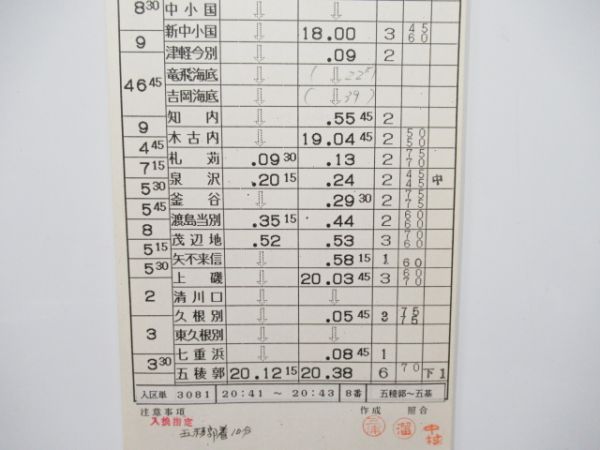 8 30 中小国 ⇩ ⇩
新中小国 ⇩ 18.00 3 45 60
9
津軽今別 ⇩ .09 2
46 45
竜飛海底 ⇩ (⇩ 22)
吉岡海底 ⇩ (⇩ 39)
知内 ⇩ .55 45 2
9
木古内 ⇩ 19.04 45 2 50 50
4 45
札苅 .09 30 .13 2 75 70
7 15
泉沢 .20 15 .24 2 45 45 中
5 30
釜谷 ⇩ .29 30 2 75 75
5 45
渡島当別 .35 15 .44 2 60 60
8
茂辺地 .52 .53 3 70 60
5 15
矢不来信 ⇩ .58 15 1 60
5 30
上磯 ⇩ 20.03 45 3 60 70
2
清川口 ⇩ ⇩
久根別 ⇩ .05 45 2 75 75
3
東久根別 ⇩ ⇩
七重浜 ⇩ .08 45 1
3 30
五稜郭 20.12 15 20.38 6 70 下1
入区単 3081 20:41 ～ 20:43 8番 五稜郭～五基
注意事項 作成 照合
入換指定
五稜郭着 10分
中村